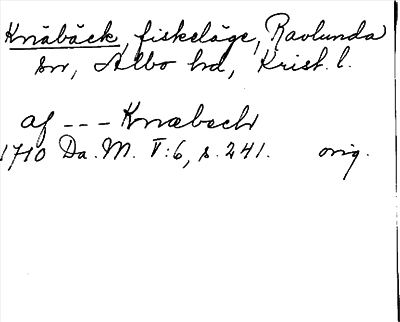 Knäbäck, fiskeläge, Ravlunda
sn, Albo hd, Krist. l.
af --- Knæbech
1710 Da. M. V:6, s. 241. orig.